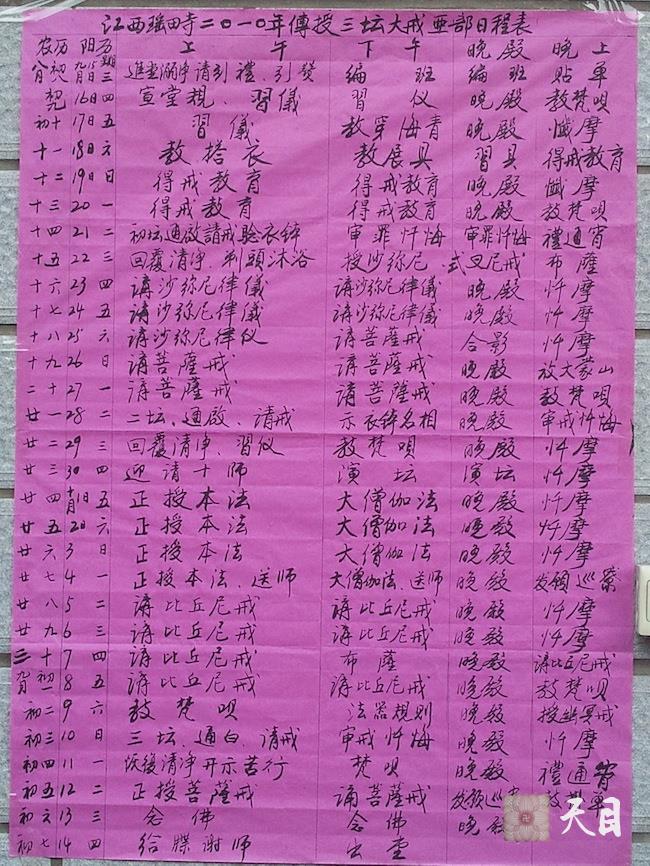 江西瑞田寺二〇一〇年傳授三坛大戒西部日程表
农历 阳历 星期 上午 下午 晚殿 晚上
八月初八 九月15日 三 進堂溺净請引禮、引贊 編班 編班 貼单
初九 16日 四 宣堂規、習儀 習仪 晚殿 教梵唄
初十 17日 五 習儀 教穿海青 晚殿 懺摩
十一 18日 六 教搭衣 教展具 習具 得戒教育
十二 19日 日 得戒教育 得戒教育 晚殿 懺摩
十三 20 一 得戒教育 得戒教育 晚殿 教梵唄
十四 21 二 初坛通啟請戒驗衣鉢 审罪忏悔 审罪忏悔 禮通宵
十五 22 三 回覆清净、剃頭沐浴 授沙弥尼 式叉尼戒 布薩
十六 23 四 講沙弥尼律儀 講沙弥尼律儀 晚殿 忏摩
十七 24 五 講沙弥尼律儀 講沙弥尼律儀 晚殿 忏摩
十八 25 六 講沙弥尼律仪 講菩薩戒 合影 忏摩
十九 26 日 講菩薩戒 講菩薩戒 晚殿 放大蒙山
二十 27 一 講菩薩戒 講菩薩戒 晚殿 教梵唄
廿一 28 二 二坛、通啟、請戒 示衣鉢名相 晚殿 审戒忏悔
廿二 29 三 回覆清净、習仪 教梵唄 晚殿 忏摩
廿三 30 四 迎請十师 演坛 演坛 忏摩
廿四 十月1日 五 正授本法 大僧伽法 晚殿 忏摩
廿五 2日 六 正授本法 大僧伽法 晚殿 忏摩
廿六 3 日 正授本法 大僧伽法 晚殿 忏摩
廿七 4 一 正授本法、送师 大僧伽法、送师 晚殿 发願巡寮
廿八 5 二 講比丘尼戒 講比丘尼戒 晚殿 忏摩
廿九 6 三 講比丘尼戒 講比丘尼戒 晚殿 忏摩
三十 7 四 講比丘尼戒 布薩 晚殿 講比丘尼戒
九月初一 8 五 講比丘尼戒 講比丘尼戒 晚殿 教梵唄
初二 9 六 教梵唄 法器規则 晚殿 授幽冥戒
初三 10 日 三坛、通白、請戒 审戒忏悔 晚殿 忏摩
初四 11 一 恢復清净开示苦行 梵唄 晚殿 禮通宵
初五 12 二 正授菩薩戒 誦菩薩戒 发願巡
初六 13 三 念佛 念佛 晚殿
初七 14 四 给牒谢师 出堂
天目